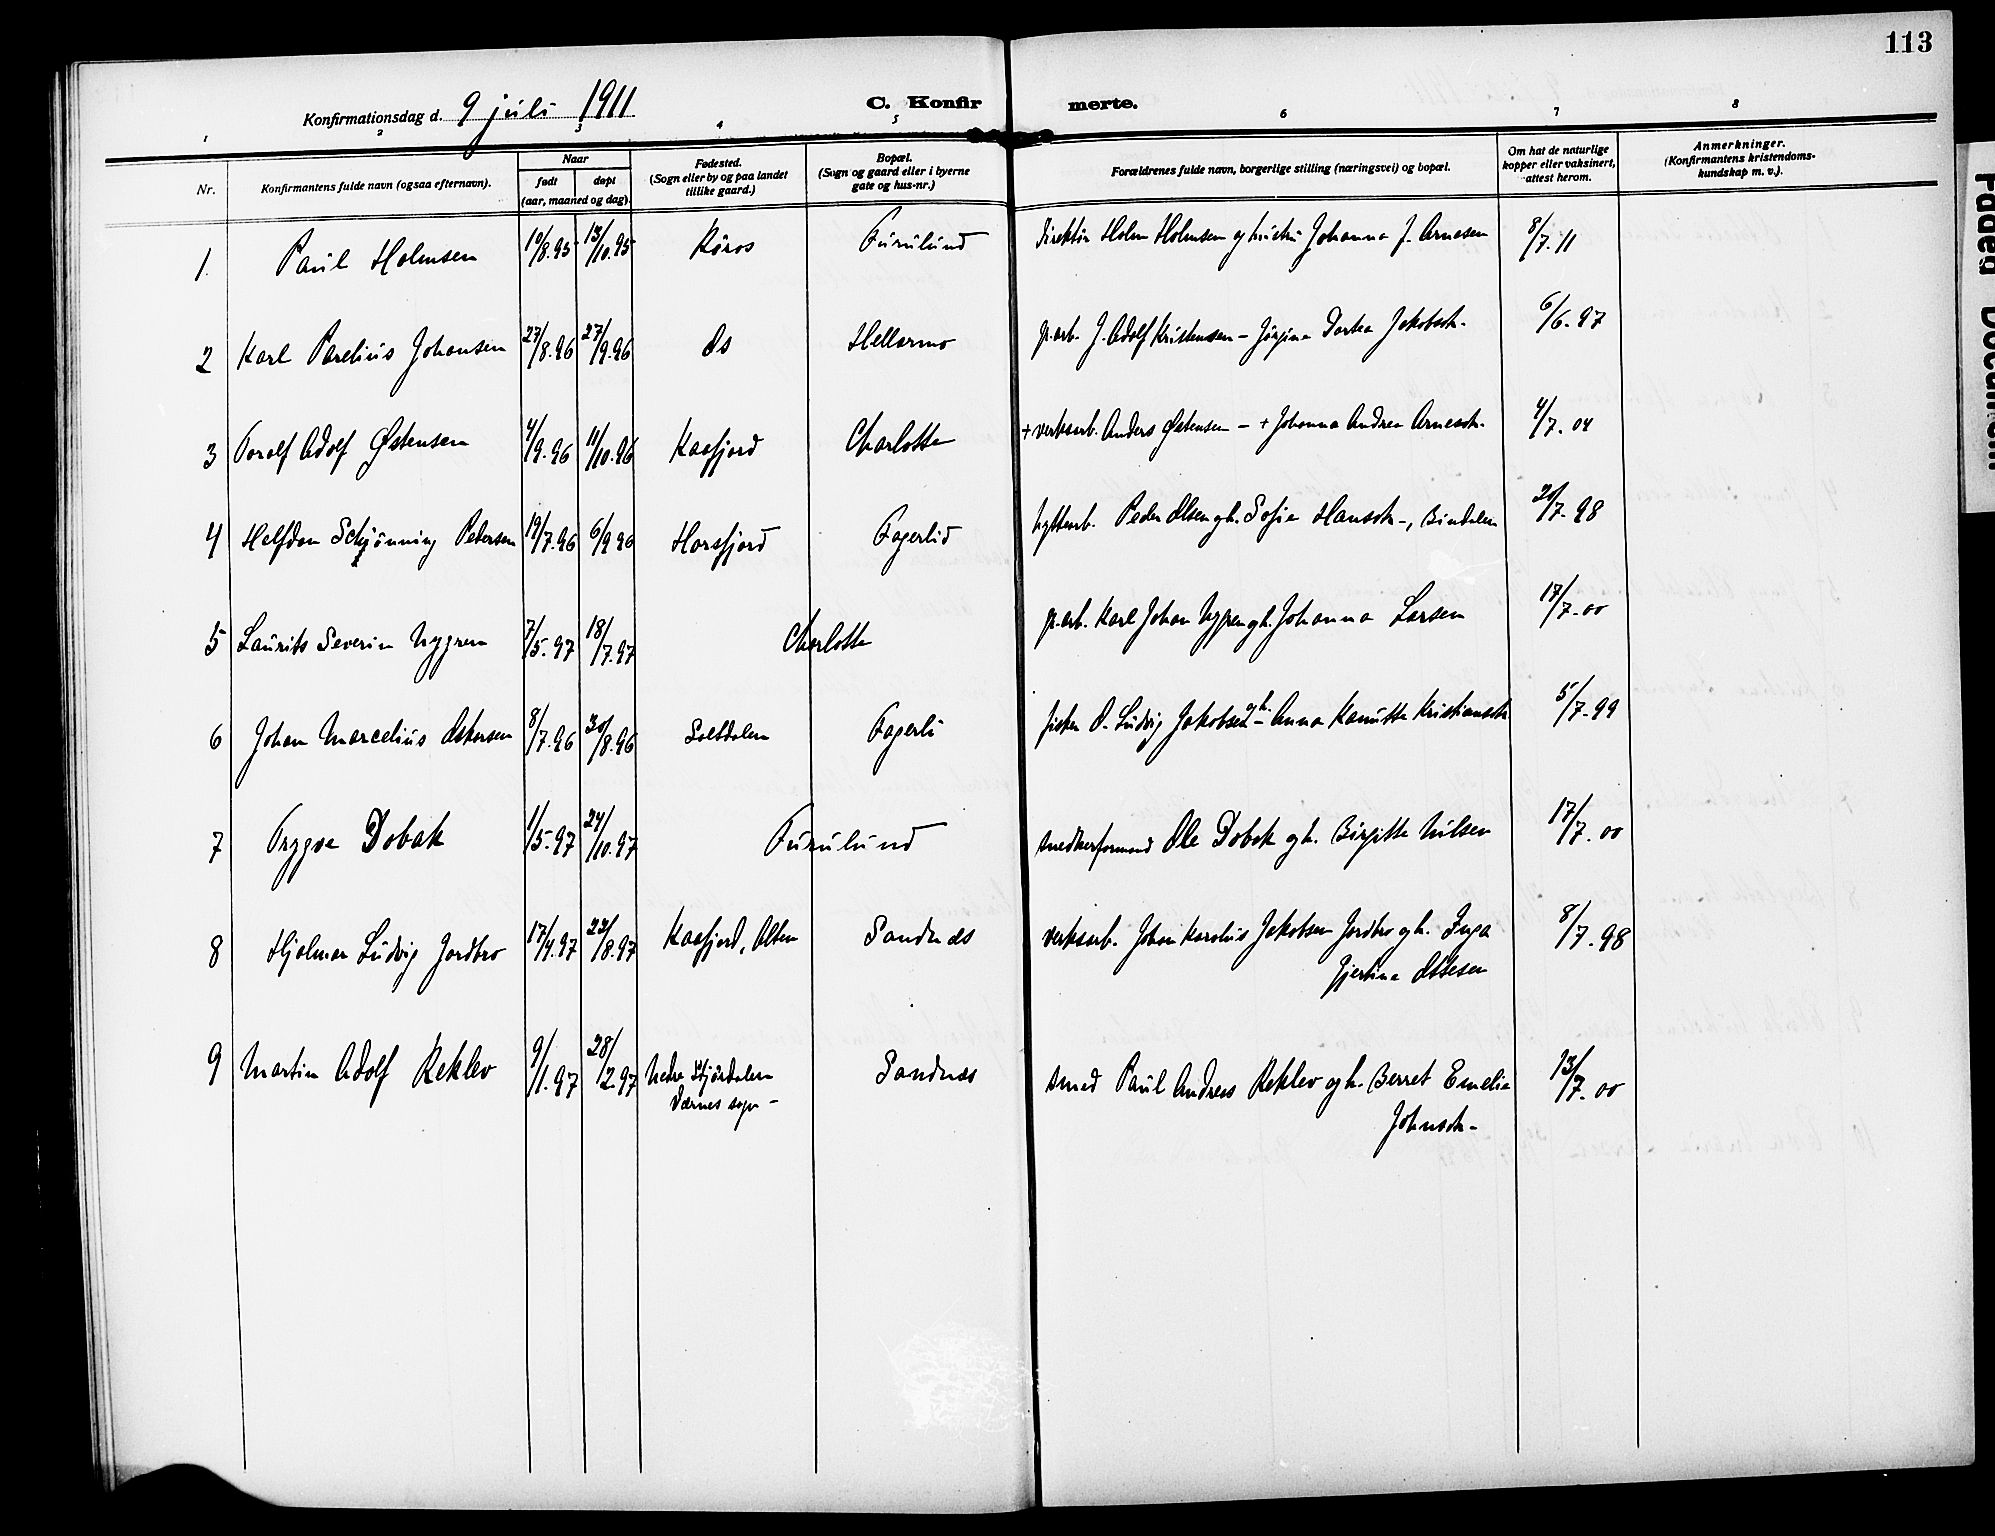 113
Konfirmationsdag d. 9 juli 1911
C. Konfir merte.
1 2 3 4 5 6 7 8
Nr.
Konfirmantens fulde navn (ogsaa efternavn).
Naar
født døpt
(aar, maaned og dag).
Fødested.
(Sogn eller by og paa landet
tillike gaard.)
Bopæl.
(Sogn og gaard eller i byerne
gate og hus-nr.)
Forældrenes fulde navn, borgerlige stilling (næringsvei) og bopæl.
Om hat de naturlige
kopper eller vaksinert,
attest herom.
Anmerkninger.
(Konfirmantens kristendoms-
kundskap m. v.).
1. Paul Holmsen 10/8.95 13/10.95 Røros Furulund Direktør Holm Holmsen og hustru Johanna J. Arnesen 8/7.11
2 Karl Parelius Johansen 27/8.96 27/9.96 Os Hellarmo gr.arb. J. Adolf Kristensen – Jørgine Dortea Jakobsdt. 6/6.97
3 Torolf Adolf Østensen 4/9.96 11/10.96 Kaafjord Charlotta + verksarb. Anders Østensen – + Johanna Andrea Arnesdt. 4/7.04
4 Halfdan Schjønning Petersen 19/7.96 6/9 96 Horsfjord Fagerlid hyttearb. Peder Olsen og h. Sofie Hansdt –, Bindalen 20/7.98
5 Laurits Severin Nygren 7/5.97 18/7.97 Charlotta gr.arb. Karl Johan Nygren og h. Johanna Larsen 17/7.00
6 Johan Marcelius Oskarsen 8/7.96 30/8.96 Saltdalen Fagerli fisker O. Ludvig Jakobsen og h. – Anna Kanutta Kristiansdt 5/7.99
7 Trygve Dobak 1/5.97 24/10.97 Furulund snedkerformand Ole Dobak og h. Birgitte Nilsen 17/7.00
8 Hjalmar Ludvig Jordbro 17/4.97 22/8.97 Kaafjord, Alten Sandnes verksarb. Johan Karolius Jakobsen Jordbro og h. Inga
Gjertine Ottesen 8/7.98
9 Martin Adolf Reklev 9/1.97 28/2.97 Nedre Stjørdalen
Værnes sogn – Sandnes smed Paul Andreas Reklev og h. Berret Emelie
Johnsdt – 13/7.00